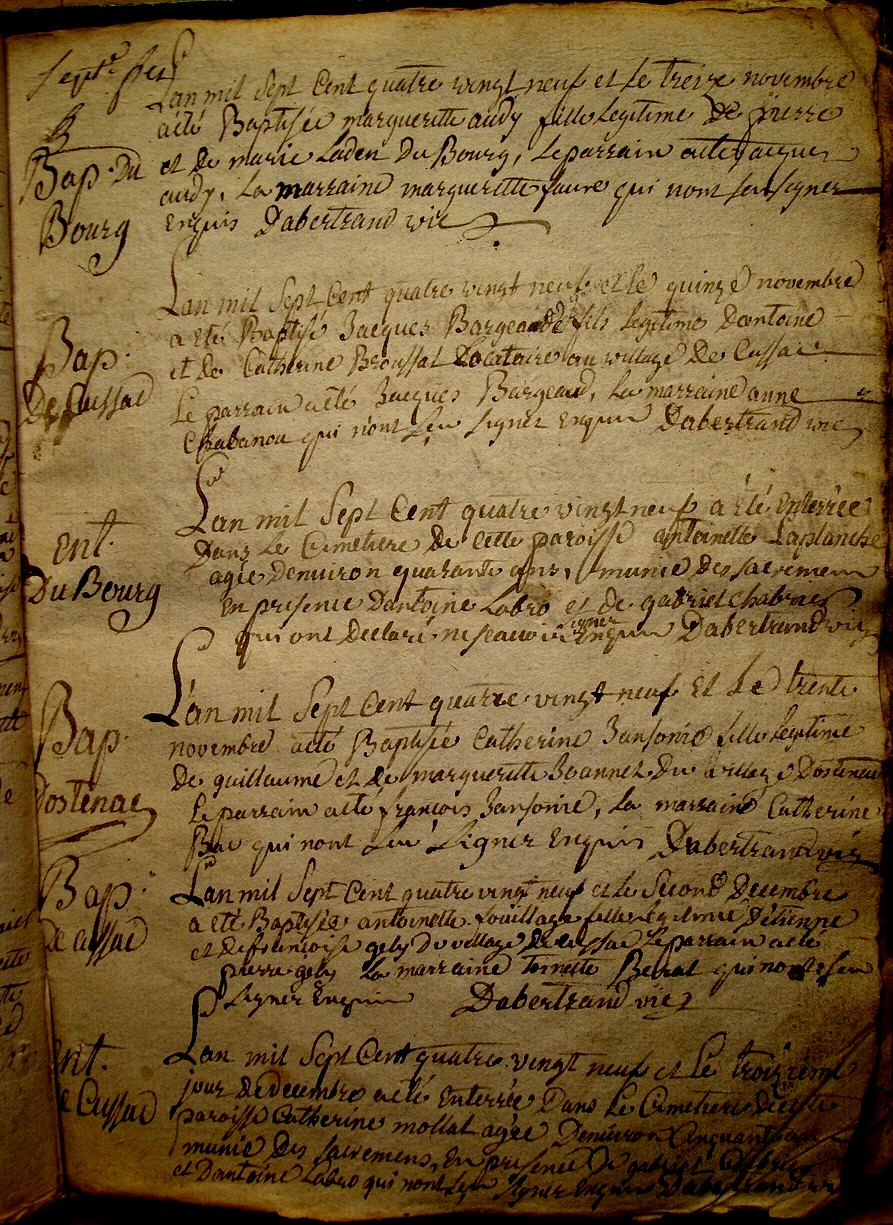 Lan mil Sept Cent quatre vingt neuf et le treize novembre
aété Baptisée margueritte audy fille Legitime De pierre
Bap. Du
et de marie Laden Du Bourg, Le parrain aeté jacques
audy, La marraine marguerette faure qui nont seu signer
Bourg
Enquis Dabertrand vic
Lan mil Sept Cent quatre vingt neuf et le quinze novembre
a eté Baptisé Jacques Bargeaud fils Legitime Dantoine
Bap.
et de Catherine Broussal Locataire au village De Cussac
De Cussac
Le parrain aeté Jacques Bargeaud, La marraine anne
Chabanou qui n'ont seu signer Enquis Dabertrand vic
Lan mil Sept Cent quatre vingt neuf a été Enterrée
Ent.
Dans Le Cimetiere De Cette paroisse antoinette Laplanche
Du Bourg
agée Denviron quarante ans, munie Des sacremens
En presence Dantoine Labro et de gabriel Chabrier
qui ont Declaré ne scavoir signer Enquis Dabertrand vic
L'an mil Sept Cent quatre vingt neuf Et Le trente
Bap.
novembre aeté Baptisée Catherine Jansonie fille Legitime
De guillaume et de marguerette Joannet Du village Dostenac
Dostenac
Le parrain aeté françois Jansonie, La marraine Catherine
Bac qui nont seu Signer Enquis Dabertrand vic
Bap.
Lan mil Sept Cent quatre vingt neuf et le Second Decembre
a eté Baptisée antoinette fouillage fille Legitime Detienne
De Cussac
et de françoise gely Du village De Cussac Le parrain aeté
pierre gely La marraine Toinette Beirat qui nont seu
Signer Enquis Dabertrand vic
Lan mil Sept Cent quatre vingt neuf et Le troizieme
Ent.
jour De Decembre aeté Enterrée Dans Le Cimetiere De Cette
De Cussac
paroisse Catherine mollat agée Denviron Cinquante ans
munie Des sacremens, En presence De gabriel Chabrier
et Dantoine Labro qui nont seu signer Enquis Dabertrand vic